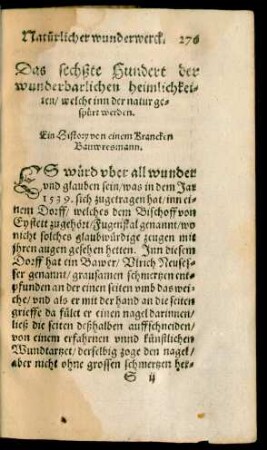 Natürlicher wunderwerck. 276
Das sechßte Hundert der
wunderbarlichen heimlichkei-
ten/ welche inn der natur ge-
spürt werden.
Ein History von einem Krancken
Bauwresmann.
ES würd vber all wunder
vnd glauben sein/ was in dem Jar
1539. sich zugetragen hat/ inn ei
nem Dorff/ welches dem Bischoff von
Eystett zugehört/ Fugenstal genannt/ wo
nicht solches glaubwürdige zeugen mit
jhren augen gesehen hetten. Inn diesem
Dorff hat ein Bawer/ Vlrich Neuses-
ser genannt/ grausamen schmertzen ent-
pfunden an der einen seiten vmb das wei-
che/ vnd als er mit der hand an die seiten
grieffe da fület er einen nagel darinnen/
ließ die seiten deßhalben auffschneiden/
von einem erfahrnen vnnd künstlichen
Wundtartzet/ derselbig zoge den nagel/
aber nicht ohne grossen schmertzen her-
S ij